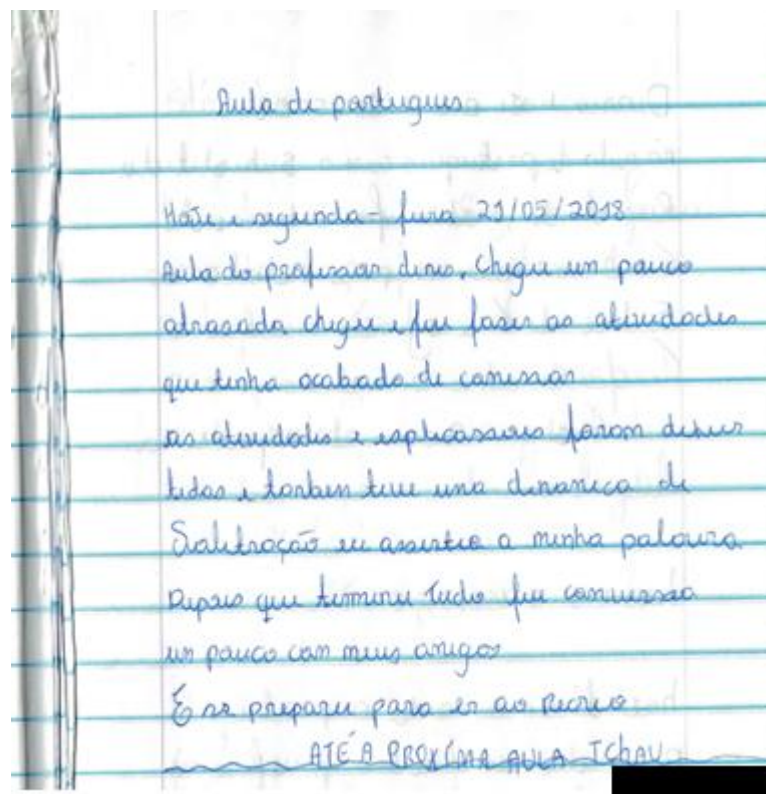 Aula de portugues
Hoje e segunda-feira 21/05/2018
Aula do professor denis. cheguei um pouco
atrasada cheguei e fui faser as atividades
que tinha acabado de comessar
as atividades e esplicassoes foram diver
tidas e tonben teve uma dinamica de
Soletração eu assertei a minha palavra
Depois que terminei Tudo fui conversa
un pouco com meus amigos
E me preparei para ir ao Recreio
ATÉ A PROXÍMA AULA TChAU